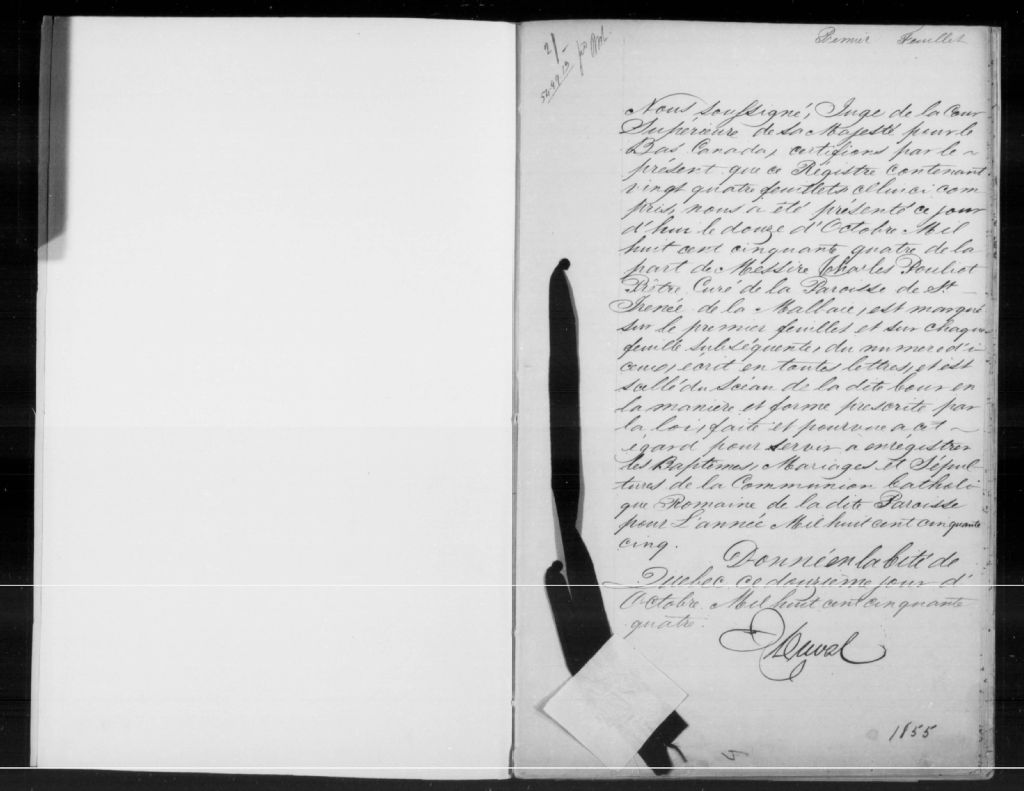 2/-
Premier Feuillet
Nous soussigné, Juge de la Cour
Supérieure de sa Majesté pour le
Bas Canada, certifions par le
présent que ce Régistre contenant
vingt quatre feuillets celluici com
pris, nous a été présenté ce jour
d'hui le douze d'Octobre Mil
huit cent cinquante quatre de la
part de Messire Charles Pouliot
Prêtre Curé de la Paroisse de St
Irenée de la Malbaie, est marqué
sur le premier feuillet et sur chaque
feuille subséquente, du numero d'i
celui, écrit en toutes lettres, et est
scellé du Scéau de la dite Cour en
la manière et forme prescrite par
la loi, faite et pourvue a cet
égard pour servir a enrégistrer
les Baptêmes, Mariages et Sépul
tures de la Communion Catholi
que Romaine de la dite Paroisse
pour L'année Mil huit cent cinquante
cinq.
Donné en la Cité de
Quebec ce douzième jour d'
Octobre Mil huit cent cinquante
quatre.
Duval
1855